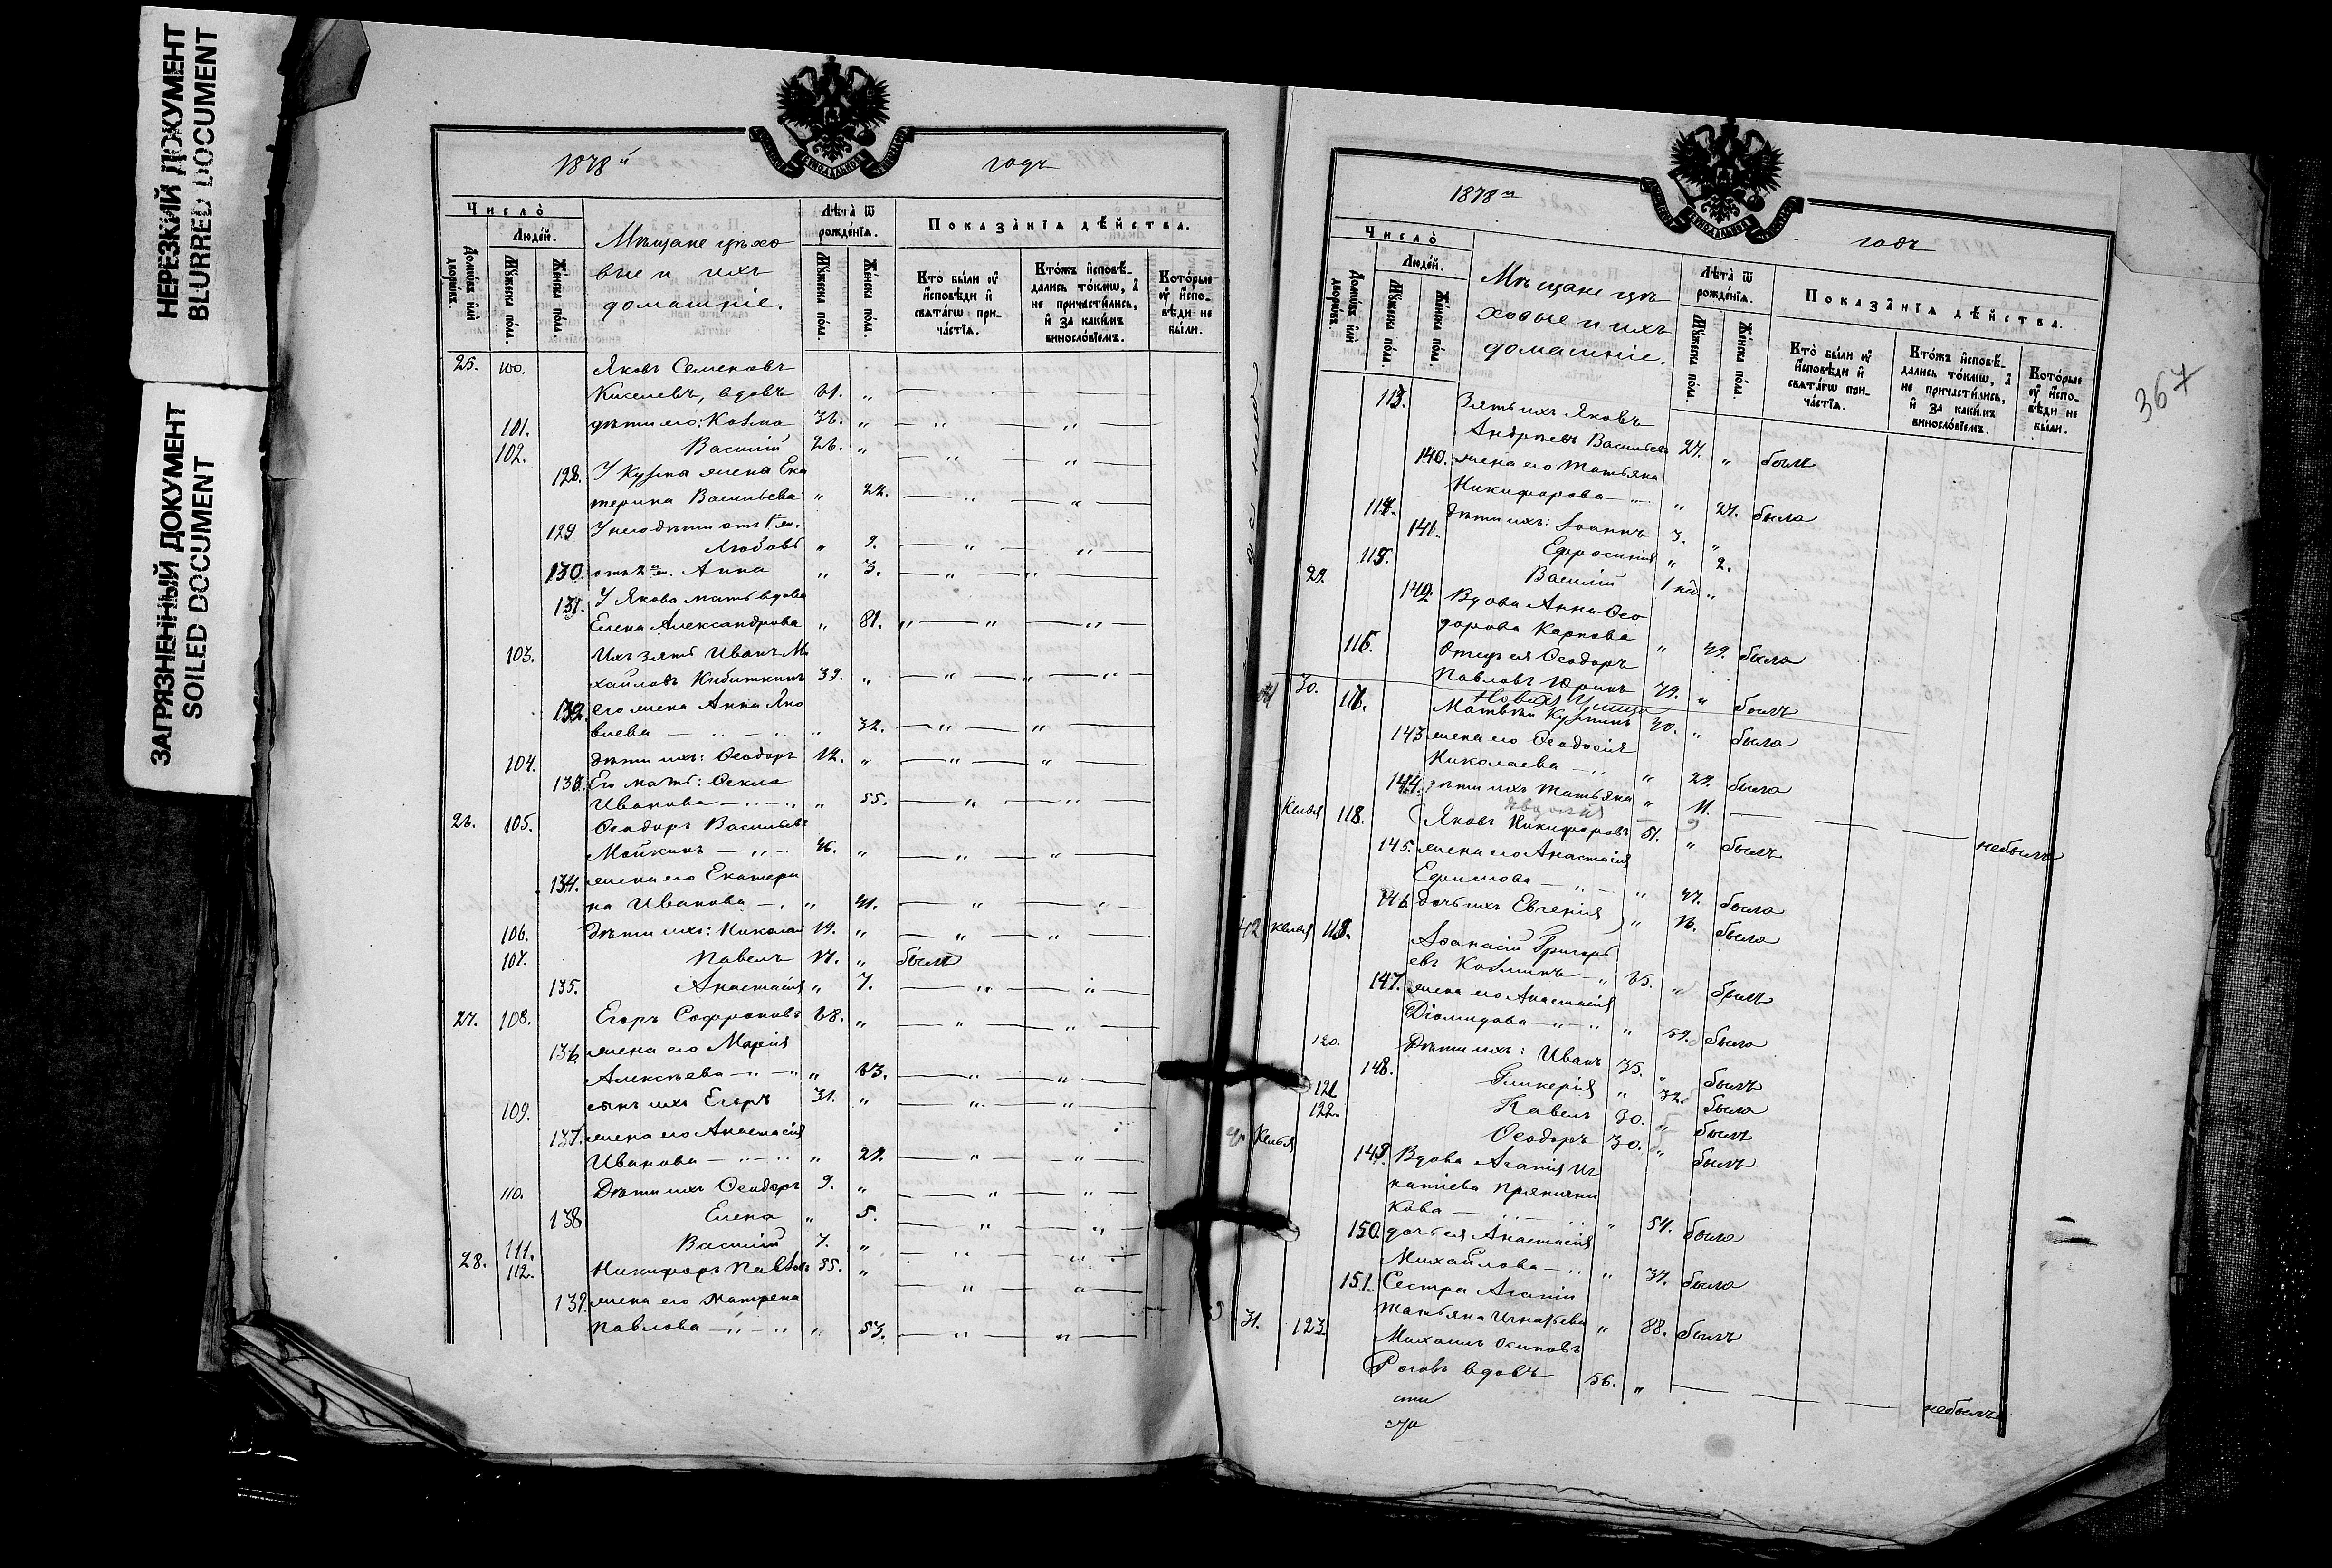 НЕРЕЗКИЙ ДОКУМЕНТ
BLURRED DOCUMENT
ЗАГРЯЗНЕННЫЙ ДОКУМЕНТ
SOILED DOCUMENT
1878й годъ
Число̀
Люде́й.
Домѡ́въ и҆лѝ дворѡ́въ.
Мꙋ́жеска по́ла.
Же́нска по́ла.
Мѣщане цехо
вые и ихъ
домашніе.
Лѣта̀ ѿ рожде́нїѧ.
Мꙋ́жеска по́ла.
Же́нска по́ла.
Показа̑нїѧ дѣ́йства.
Кто̀ бы́ли ᲂу҆ и҆сповѣ́ди и҆ свѧта́гѡ прича́стїѧ.
Кто́жъ и҆сповѣ́дались то́кмѡ, а҆ не причасти́лись, и҆ за каки́мъ винослѡ́вїемъ.
Кото́рые ᲂу҆ и҆сповѣ́ди не бы́ли.
25. 100. Яковъ Семеновъ
Киселевъ, вдовъ 61. „
101. дѣти его: Козма 36. „
102. Василій 26. „
128. У Кузмы жена Ека
терина Васильева „ 22.
129 У него дѣти отъ 1й ж.
Любовь „ 9.
130. отъ 2й ж. Анна „ 3.
131. У Якова мать вдова
Елена Александрова „ 81.
103. Ихъ зять Иванъ Ми
хайловъ Кибиткинъ 39. „
132. его жена Анна Яко
влева „ 32.
104. дѣти ихъ: Ѳеодоръ 12. „
133. Его мать: Ѳекла
Иванова „ 55.
26. 105. Ѳеодоръ Васильевъ
Мойкинъ 46. „
134. жена его Екатери
на Иванова „ 41.
106. Дѣти ихъ: Николай 19. „
107. Павелъ 17. „ былъ
135. Анастасія „ 7.
27. 108. Егоръ Софроновъ 68. „
136 жена его Марія
Алексѣева „ 63.
109. сынъ ихъ Егоръ 31. „
137. жена его Анастасія
Иванова „ 29.
110. Дѣти ихъ Ѳеодоръ 9. „
138 Елена „ 5.
111. Василій 7. „
28. 112. Никифоръ Павловъ 55. „
139. жена его Матрена
Павлова „ 53.
1878й годъ
367
Число̀
Люде́й.
Домѡ́въ и҆лѝ дворѡ́въ.
Мꙋ́жеска по́ла.
Же́нска по́ла.
Мѣщане це
ховые и ихъ
домашніе.
Лѣта̀ ѿ рожде́нїѧ.
Мꙋ́жеска по́ла.
Же́нска по́ла.
Показа̑нїѧ дѣ́йства.
Кто̀ бы́ли ᲂу҆ и҆сповѣ́ди и҆ свѧта́гѡ прича́стїѧ.
Кто́жъ и҆сповѣ́дались то́кмѡ, а҆ не причасти́лись, и҆ за каки́мъ винослѡ́вїемъ.
Кото́рые ᲂу҆ и҆сповѣ́ди не бы́ли.
113. Зять ихъ Яковъ
Андреевъ Васильевъ 27. „ былъ
140. жена его Татьяна
Никифорова „ 27. была
114. Дѣти ихъ: Іоаннъ 3. „
141. Ефросинія „ 2.
115. Василій 1 „
29. 142. Вдова Анна Ѳео
дорова Карпова „ 49. была
116. Отецъ ея Ѳеодоръ
Павловъ 79. „ былъ
Новая Улица
30. 117. Матвѣй Кузминъ 30. „ была
143 жена его Ѳеодосія
Николаева „ 29. была
144. дѣти ихъ Татьяна „ 11.
Келья 118. Яковъ Никифоровъ 51. „ былъ небылъ
145. жена его Анастасія
Ефимова „ 47. была
146. дочь ихъ Евгенія „ 16. была
42 келья 119. Аѳанасій Григорь
евъ Козминъ 65. „ былъ
147. жена его Анастасія
Діомидова „ 59. была
120. Дѣти ихъ: Иванъ 35. „ былъ
148. Гликерія „ 32. была
121. Павелъ 30. „ былъ
122. Ѳеодоръ 30. „ былъ
Келья
149. Вдова Агапія Иг
натіева Прякичи
кова „ 54. была
150. дочь ея Анастасія
Михайлова „ 34. была
151. Сестра Агапіи
Татьяна Игнатьева „ 88. былъ
31. 123. Михаилъ Осиповъ
Роговъ вдовъ 56. „ небылъ